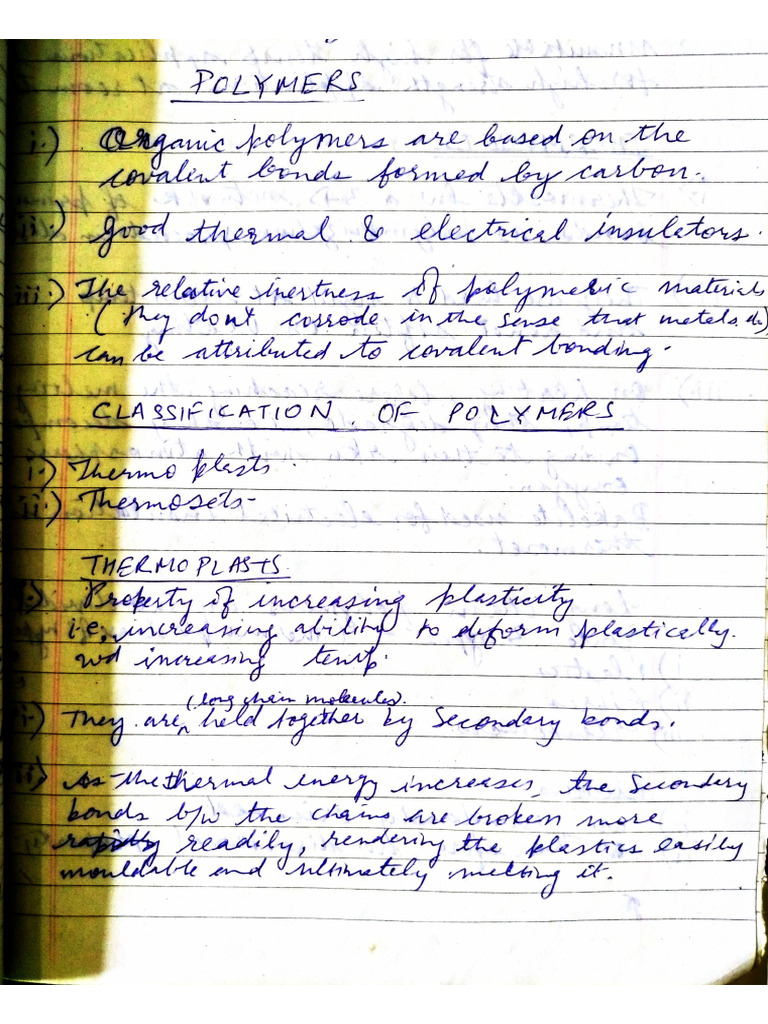 POLYMERS
i.) Organic polymers are based on the
covalent bonds formed by carbon.
ii.) Good thermal & electrical insulators.
iii.) The relative inertness of polymeric materials
(they don't corrode in the sense that metals do),
can be attributed to covalent bonding.
CLASSIFICATION OF POLYMERS
i.) Thermo plasts.
ii.) Thermosets-
THERMOPLASTS
i.) Property of increasing plasticity
i.e, increasing ability to deform plastically.
increasing temp.
(long chain molecules).
ii.) They are held together by secondary bonds.
iii) As the thermal energy increases, the secondary
bonds b/w the chains are broken more
readily, rendering the plastics easily
mouldable and ultimately melting it.